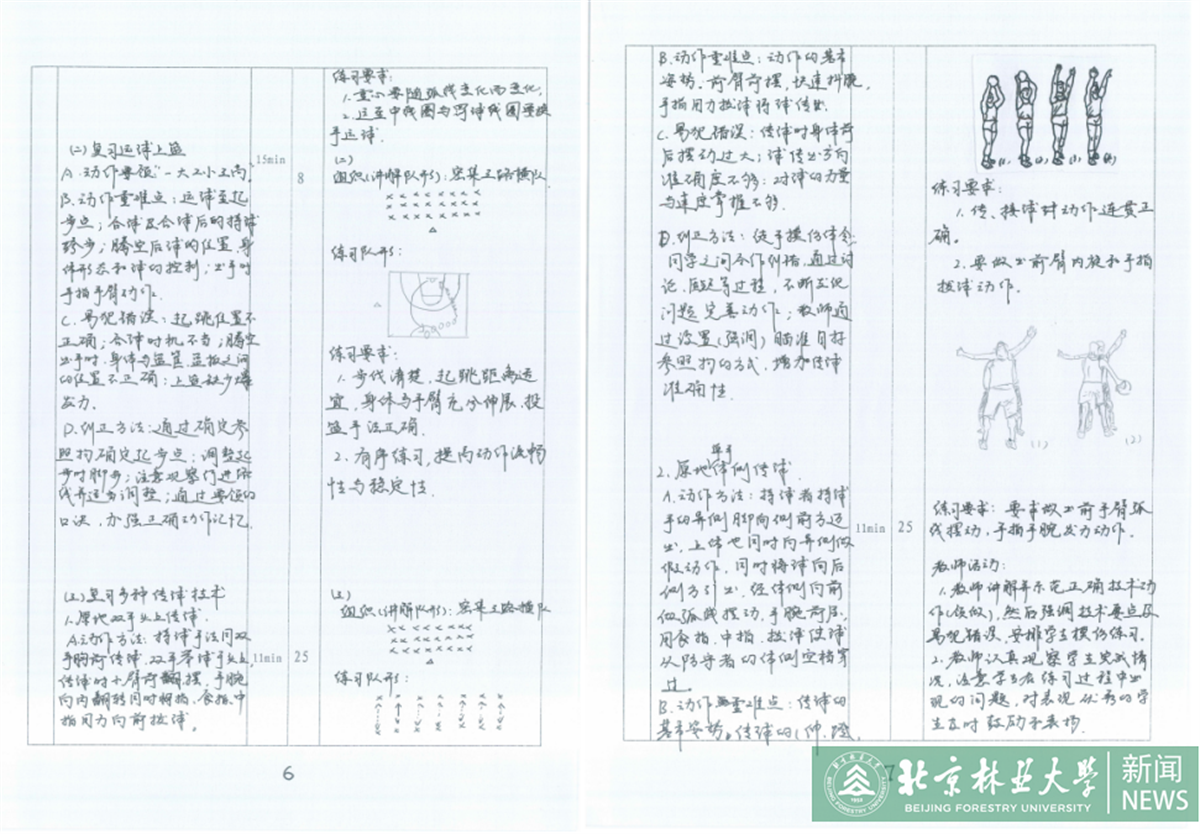 (二)复习运球上篮
A.动作要领:一大二小三高
B.动作重难点:运球至起
步点;合球及合球后的持球
跨步;腾空后球的位置,身
体形态和球的控制;出手时
手指手臂动作。
C.易犯错误:起跳位置不
正确;合球时机不当;腾空
出手时,身体与篮筐、篮板之间
的位置不正确;上篮缺少爆
发力.
D.纠正方法:通过确定参
照物确定起步点;调整起
步时脚步;注意观察行进路
线并适当调整;通过要领的
口诀,加强正确动作记忆.
(三)复习多种传球技术
1.原地双手头上传球
A.动作方法:持球手法同双
手胸前传球,双手举球于头上,
传球时小臂前摆,手腕
向内翻转同时拇指、食指、中
指用力向前拨球。
15min
8
11min
25
练习要求:
1.重心要随弧线变化而变化,
2.运至中线圈与罚球线圈要换
手运球.
(二)
组织(讲解队形):密集三路横队
练习队形:
练习要求:
1.步伐清楚,起跳距离适
宜,身体与手臂充分伸展,投
篮手法正确.
2.有序练习,提高动作流畅
性与稳定性.
(三)
组织(讲解队形):密集三路横队
练习队形:
6
B.动作重难点:动作的基本
姿势,前臂前摆,快速抖腕,
手指用力拨球将球传出.
C.易犯错误:传球时身体前
后摆动过大;球传出方向
准确度不够;对球的力量
与速度掌握不够.
D.纠正方法:徒手模仿体会,
同学之间合作纠错,通过讨
论、反思等过程,不断发现
问题完善动作;教师通
过设置(强调)瞄准目标
参照物的方式,增加传球
准确性.
2.原地单手体侧传球
A.动作方法:持球者持球
手的异侧脚向侧前方迈
出,上体也同时向异侧做
假动作,同时将球向后
侧方引出,经体侧向前
做弧线摆动,手腕前屈,
用食指、中指,拨球使球
从防守者的体侧空档穿
过.
B.动作重难点:传球的
基本姿势。传球的(伸,蹬,
11min
25
(1) (2) (3) (4)
练习要求:
1.传、接球时动作连贯正
确。
2.要做出前臂内旋和手指
拨球动作.
(1) (2)
练习要求:要求做出前手臂弧
线摆动,手指手腕发力动作.
教师活动:
1.教师讲解并示范正确技术动
作(领做),然后强调技术要点及
易犯错误,安排学生模仿练习.
2.教师认真观察学生完成情
况,注意学生在练习过程中出
现的问题,对表现优秀的学
生及时鼓励予表扬.
7
北京林业大学
BEIJING FORESTRY UNIVERSITY
1952
新闻
NEWS